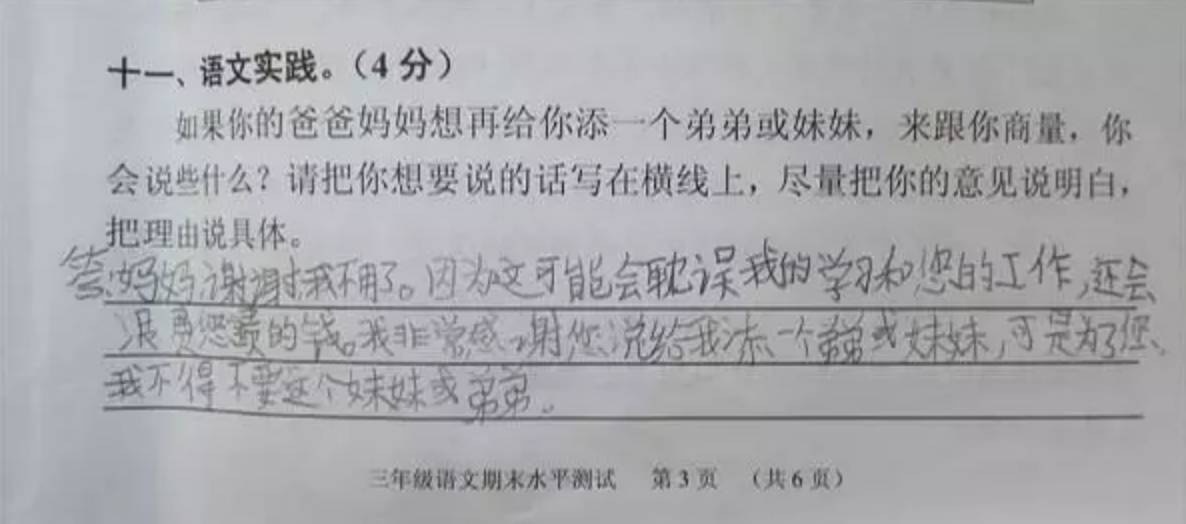 十一、语文实践。（4分）
如果你的爸爸妈妈想再给你添一个弟弟或妹妹，来跟你商量，你
会说些什么？请把你想要说的话写在横线上，尽量把你的意见说明白，
把理由说具体。
答:妈妈谢谢,我不用了。因为这可能会耽误我的学习和您的工作,还会
浪费您的钱。我非常感谢您说给我添一个弟弟或妹妹,可是为了您,
我不得不要这个妹妹或弟弟。
三年级语文期末水平测试 第3页 （共6页）